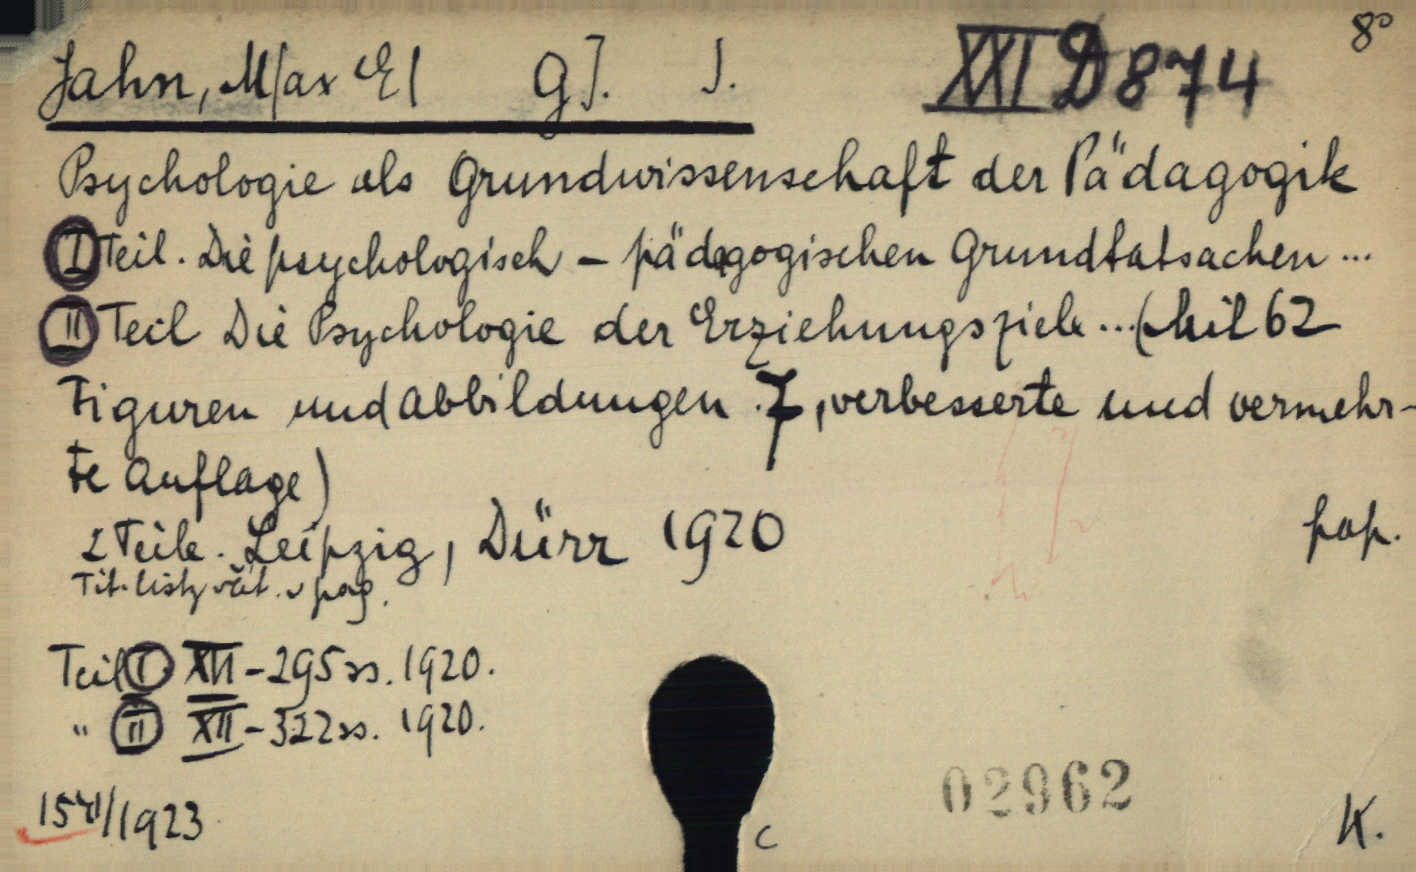 8°
Jahn, Max El G]. J. XXI D 874
Psychologie als Grundwissenschaft der Pädagogik
I Teil. Die psychologisch - pädagogischen Grundtatsachen ...
II Teil Die Psychologie der Erziehungsziele ... (Mit 62
Figuren und Abbildungen. 7, verbesserte und vermehr-
te Auflage)
2 Teile. Leipzig, Dürr 1920 pap.
Tit. listy včít. v pag.
Teil I XII - 295 ss. 1920.
" II XII - 322 ss. 1920.
02962
/1923
C K.